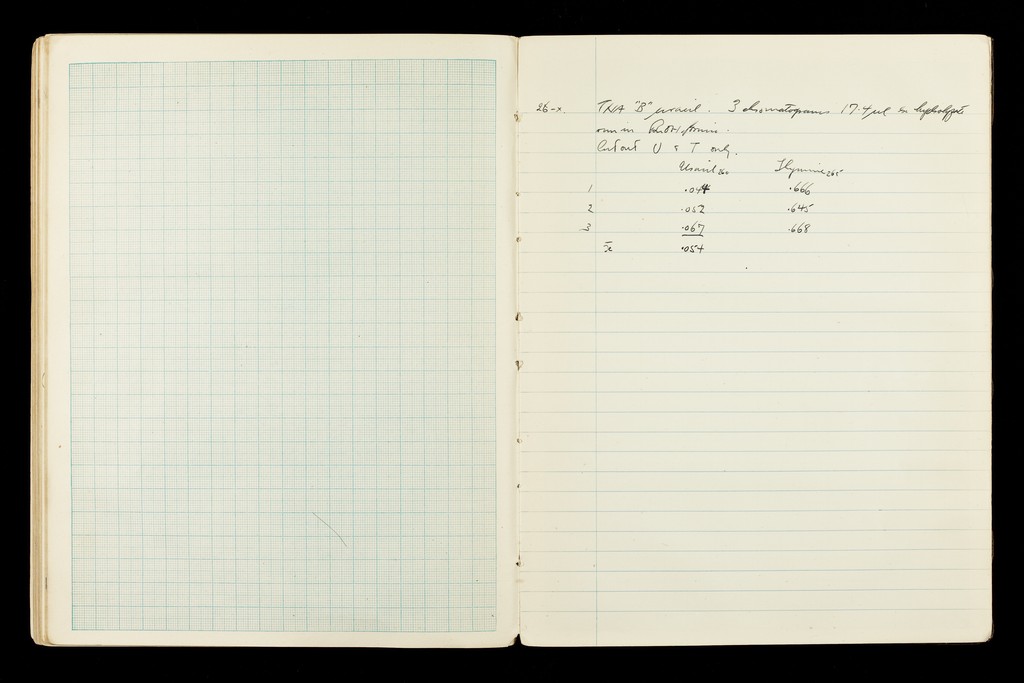 26-x. TNA "B" uracil. 3 chromatograms 17.4 µl
run in
Cut out U & T only.
Uracil 260 Thymine 265
1 .044 .666
2 .052 .645
3 .067 .668
x̄ .054